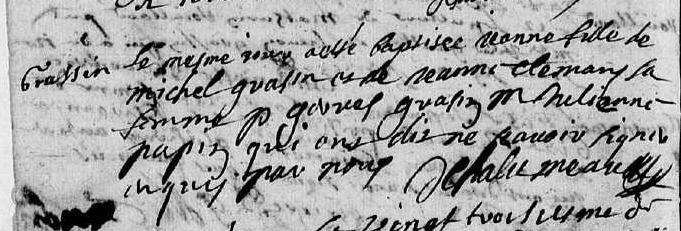 Grassin
le mesme jour a esté baptisee Jeanne fille de
michel grasin et de Jeanne clemans sa
femme p gorves grasin m helienne
papin qui ont dit ne savoir signer
enquis par nous Dechalumeau
le vingt troisiesme d